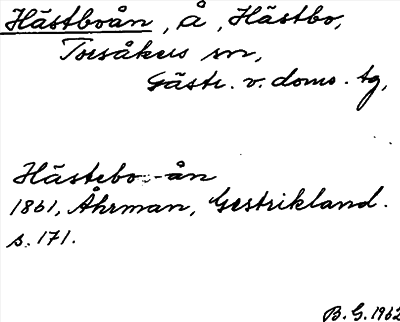 Hästboån, å, Hästbo,
Torsåkers sn,
Gästr. v. doms. tg,
Hästebo-ån
1861, Åhrman, Gestrikland.
s. 171.
B. G. 1962